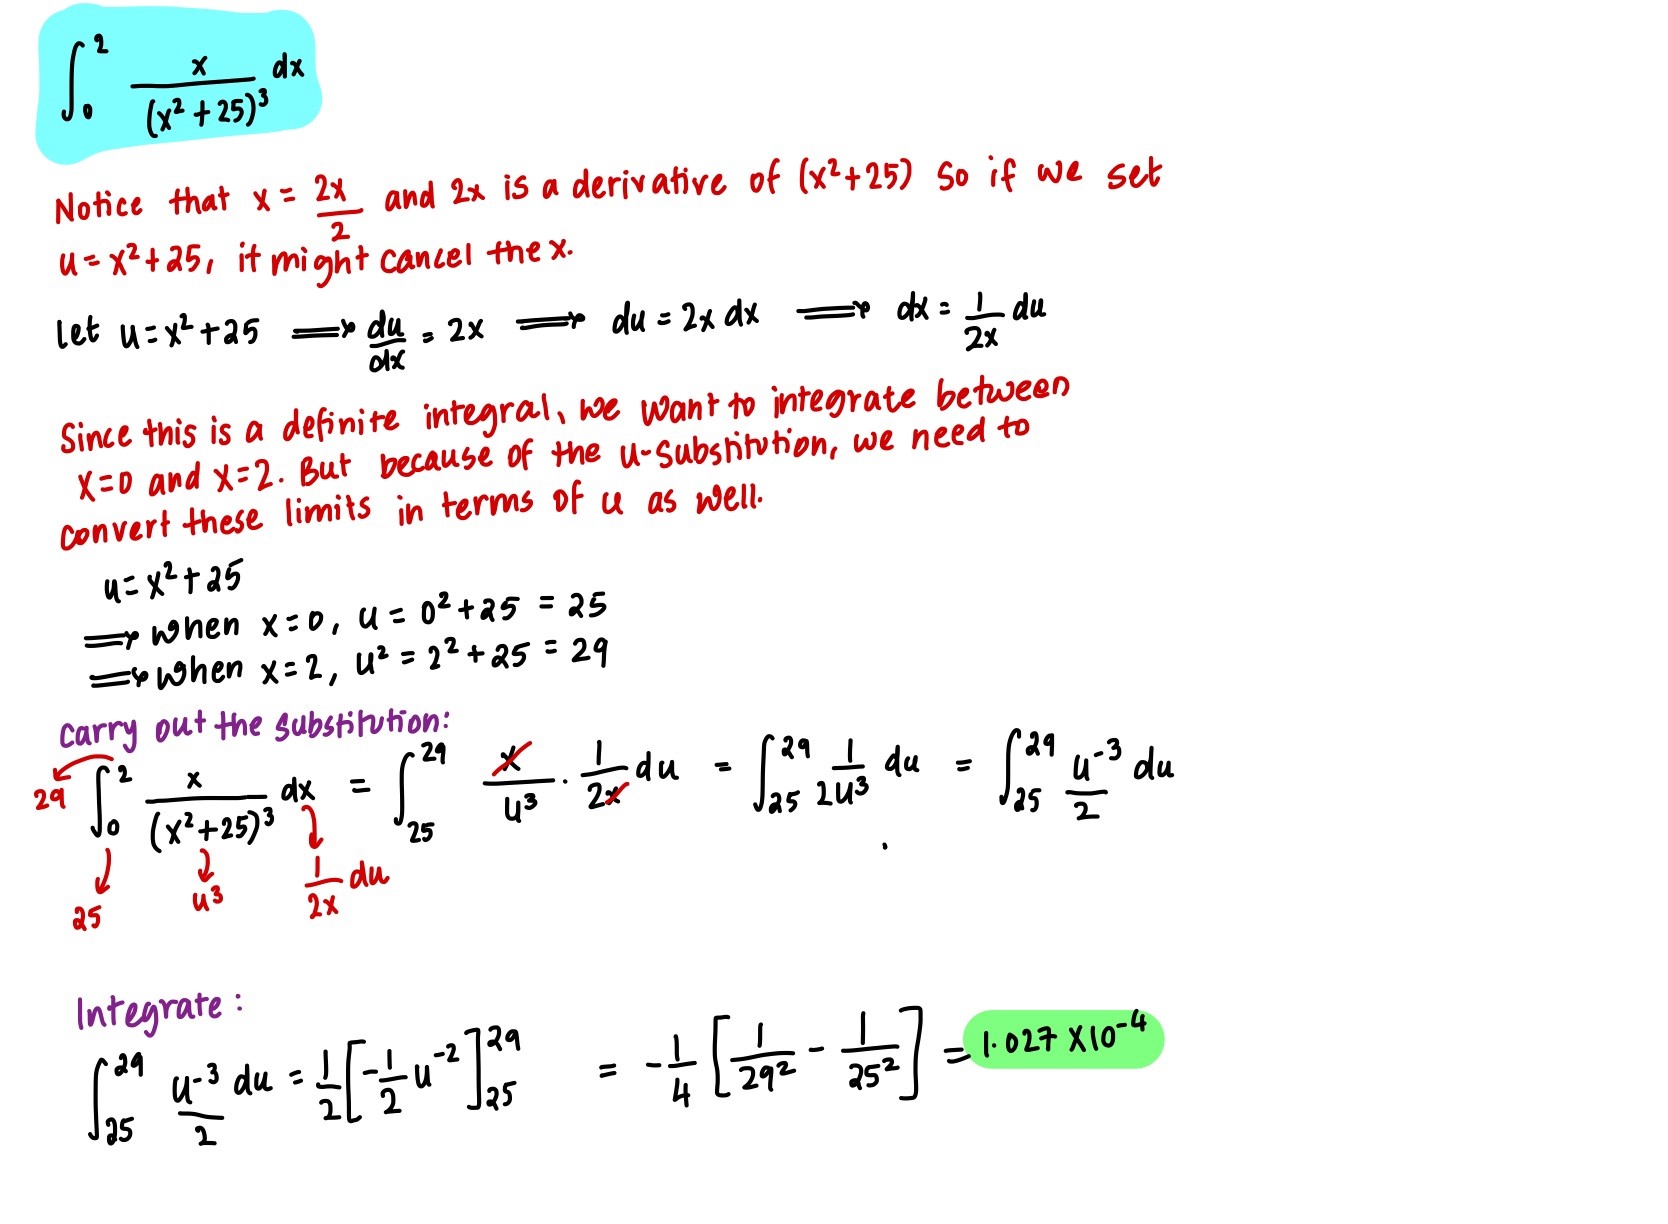 ∫₀² x/(x² + 25)³ dx
Notice that x = 2x/2 and 2x is a derivative of (x²+25) so if we set
u = x²+25, it might cancel the x.
Let u = x²+25 ⟹ du/dx = 2x ⟹ du = 2x dx ⟹ dx = 1/2x du
Since this is a definite integral, we want to integrate between
x=0 and x=2. But because of the u-substitution, we need to
convert these limits in terms of u as well.
u = x²+25
⟹ when x=0, u = 0²+25 = 25
⟹ when x=2, u² = 2²+25 = 29
Carry out the substitution:
∫₀² x/(x²+25)³ dx = ∫₂₅²⁹ x/u³ · 1/2x du = ∫₂₅²⁹ 1/2u³ du = ∫₂₅²⁹ u⁻³/2 du
29
25
u³
1/2x du
Integrate:
∫₂₅²⁹ u⁻³/2 du = 1/2 [-1/2 u⁻²]₂₅²⁹ = -1/4 [1/29² - 1/25²] = 1.027 X10⁻⁴